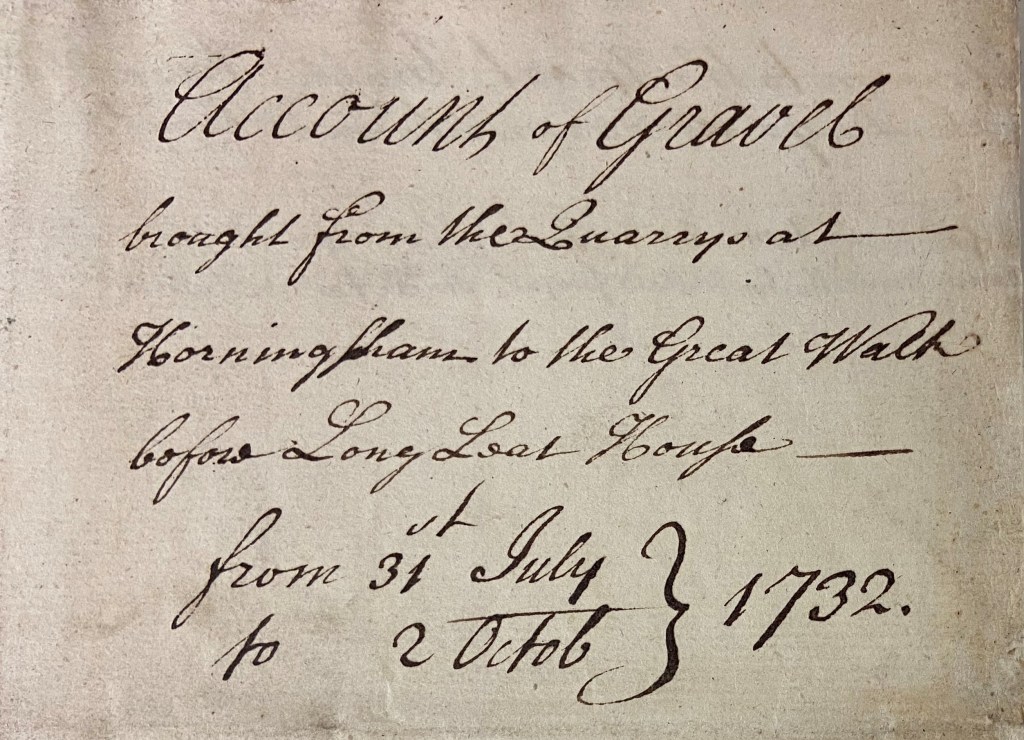 Account of Gravel
brought from the Quarrys at
Horningsham to the Great Walk
before Long Leat House
from 31st July
to 2 Octob } 1732.